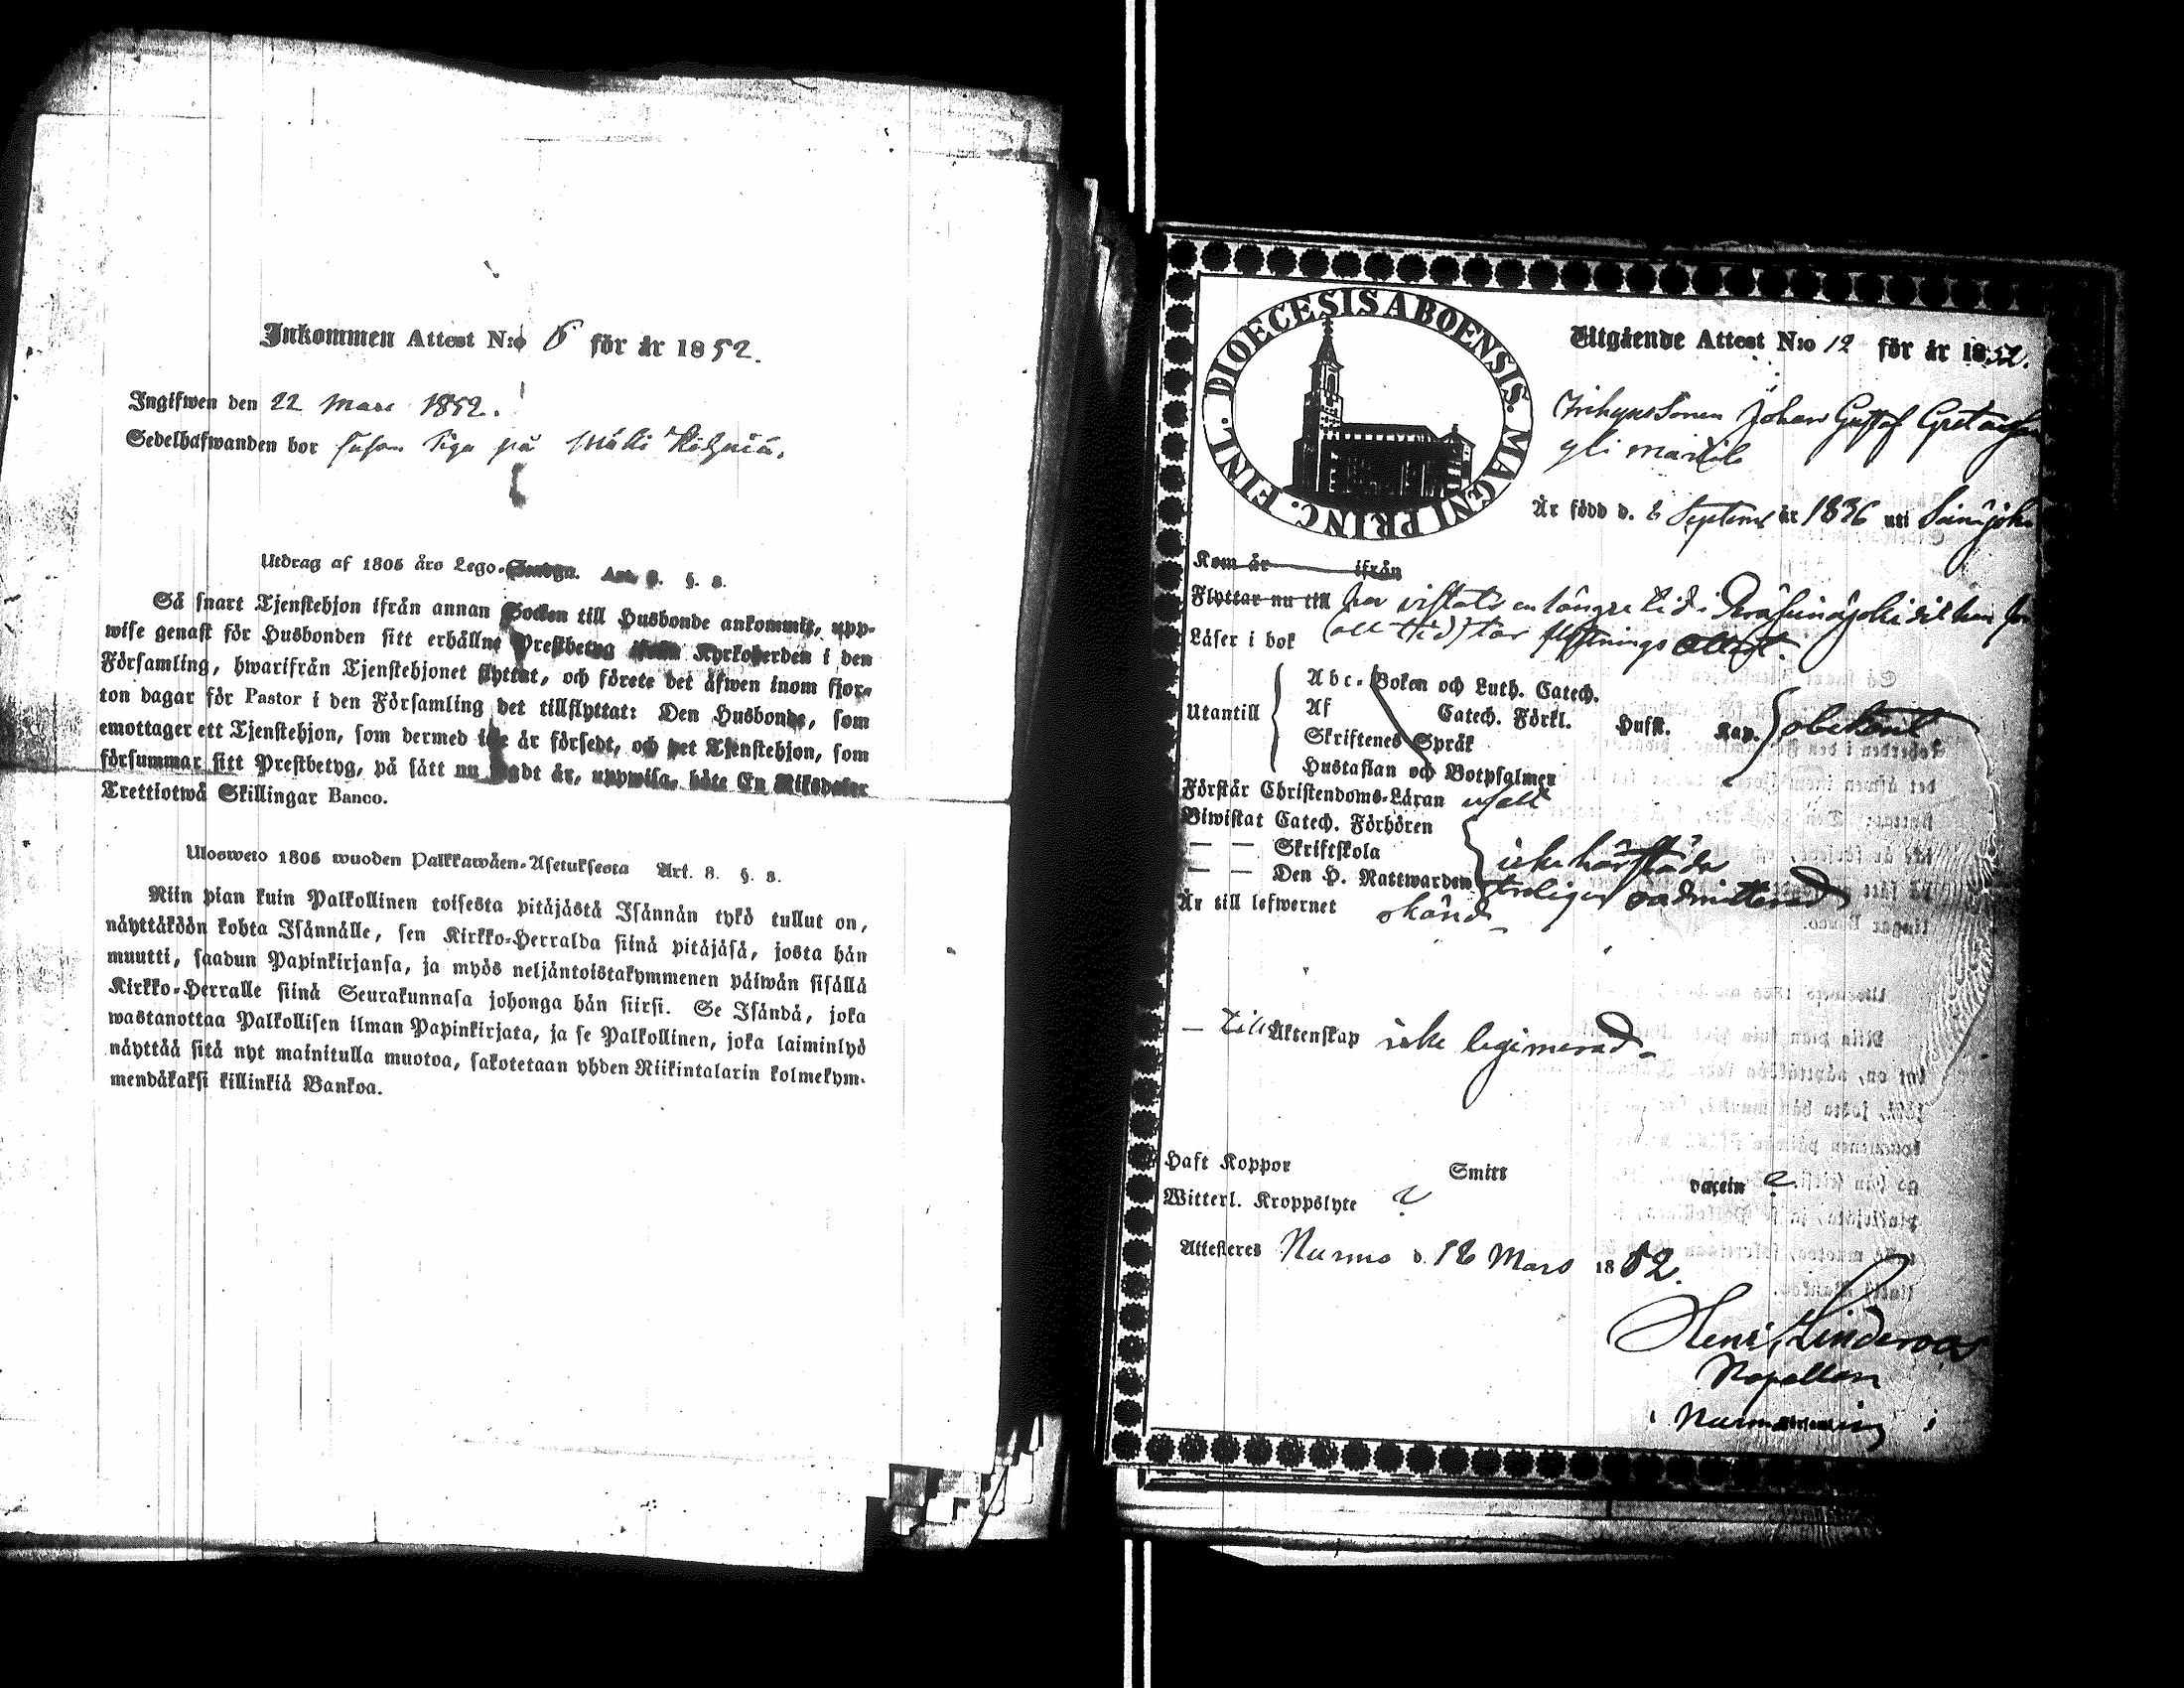 Inkommen Attest N:o 6 för år 1852.
Ingifwen den 22 Mars 1852.
Sedelhafwanden bor såsom Piga på Mäki
Utdrag af 1805 års Lego- Art. 8. §. 8.
Så snart Tjenstehjon ifrån annan Socken till Husbonde ankommit, upp-
wise genast för Husbonden sitt erhållne Prestbetyg Kyrkoherden i den
Församling, hwarifrån Tjenstehjonet flyttat, och förete det äfwen inom fjor-
ton dagar för Pastor i den Församling det tillflyttat: Den Husbonde, som
emottager ett Tjenstehjon, som dermed icke är försedt, och det Tjenstehjon, som
försummar sitt Prestbetyg, på sätt nu sagdt är, uppwisa, böte En Riksdaler
Trettiotwå Skillingar Banco.
Ulosweto 1805 wuoden Palkkawäen-Asetuksesta Art. 8. §. 8.
Niin pian kuin Palkollinen toisesta pitäjästä Isännän tykö tullut on,
näyttäköön kohta Isännälle, sen Kirkko-Herralda siinä pitäjäsä, josta hän
muutti, saadun Papinkirjansa, ja myös neljäntoistakymmenen päiwän sisällä
Kirkko-Herralle siinä Seurakunnasa johonga hän siirsi. Se Isändä, joka
wastanottaa Palkollisen ilman Papinkirjata, ja se Palkollinen, joka laiminlyö
näyttää sitä nyt mainitulla muotoa, sakotetaan yhden Riikintalarin kolmekym-
mendäkaksi killinkiä Bankoa.
DIOECESIS ABOENSIS. MAGNI PRINC. FINL.
Utgående Attest N:o 12 för år 1852.
Johan Gustaf
yli
Är född d. 8 Septemb år 1836 uti
Kom år ifrån
Flyttar nu till har vistats en längre tid i
Läser i bok (all tid) tar flyttnings attest.
Abc-Boken och Luth. Catech.
Utantill Af Catech. Förkl. Hufst. Kap. obekant
Skriftenes Språk
Hustaflan och Botpsalmer
Förstår Christendoms-Läran
Biwistat Catech. Förhören
— — Skriftskola icke härstädes
— — Den H. Nattwarden troligen oadmitterad
Är till lefwernet okänd
— till Äktenskap icke legimerad
Haft Koppor Smitt vaccin ?
Witterl. Kroppslyte ?
Attesteras Nurmo d. 18 Mars 1852.
Kapellan
i